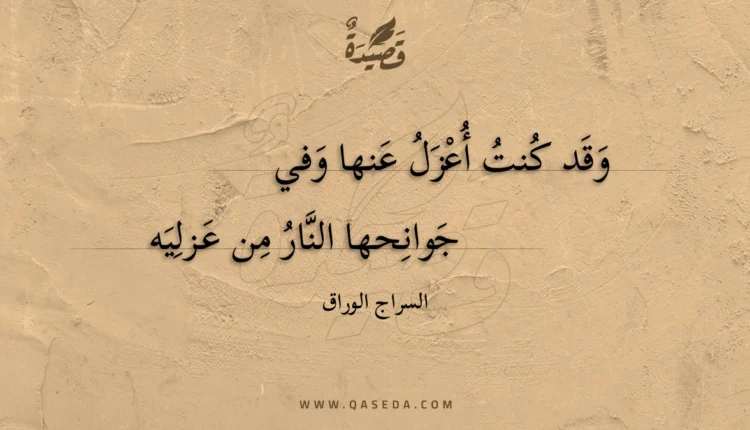 قَصِيدَةٌ
وَقَد كُنتُ أُعْزَلُ عَنها وَفي
جَوانِحها النَّارُ مِن عَزلِيَه
السراج الوراق
WWW.QASEDA.COM